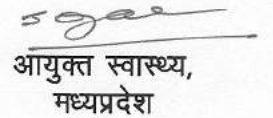 आयुक्त स्वास्थ्य,
मध्यप्रदेश